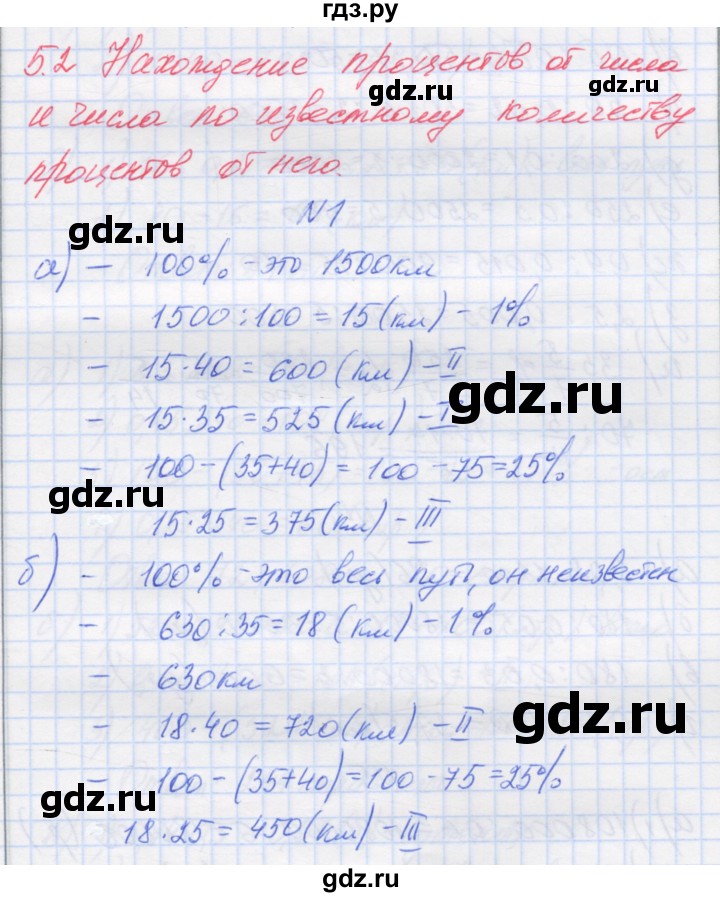 гдз.ру
5.2 Нахождение процентов от числа
и числа по известному количеству
процентов от него.
N1
а) - 100% - это 1500 км
- 1500 : 100 = 15 (км) - 1%
- 15 · 40 = 600 (км) - II
- 15 · 35 = 525 (км) - I
- 100 - (35+40) = 100 - 75 = 25%
15 · 25 = 375 (км) - III
б) - 100% - это весь путь, он неизвестен
- 630 : 35 = 18 (км) - 1%
- 630 км
- 18 · 40 = 720 (км) - II
- 100 - (35+40) = 100 - 75 = 25%
18 · 25 = 450 (км) - III
gdz.ru
gdz.ru
gdz.ru
gdz.ru
gdz.ru
gdz.ru
gdz.ru
gdz.ru
gdz.ru